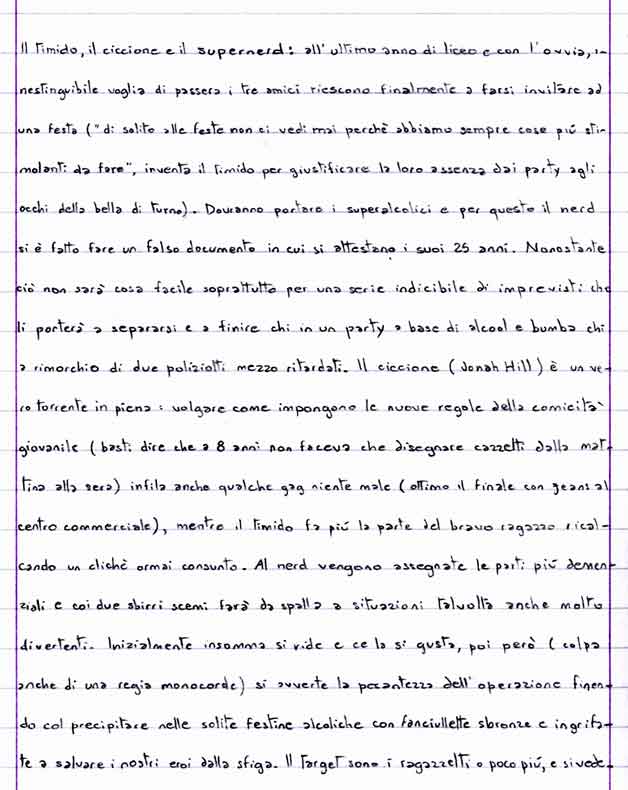 Il timido, il ciccione e il supernerd: all'ultimo anno di liceo e con l'ovvia, i-
nestinguibile voglia di passera i tre amici riescono finalmente a farsi invitare ad
una festa ("di solito alle feste non ci vedi mai perchè abbiamo sempre cose più sti-
molanti da fare", inventa il timido per giustificare la loro assenza dai party agli
occhi della bella di turno). Dovranno portare i superalcolici e per questo il nerd
si è fatto fare un falso documento in cui si attestano i suoi 25 anni. Nonostante
ciò non sarà cosa facile soprattutto per una serie indicibile di imprevisti che
li porterà a separarsi e a finire chi in un party a base di alcool e bumba chi
a rimorchio di due poliziotti mezzo ritardati. Il ciccione (Jonah Hill) è un ve-
ro torrente in piena: volgare come impongono le nuove regole della comicità
giovanile (basti dire che a 8 anni non faceva che disegnare cazzetti dalla mat-
tina alla sera) infila anche qualche gag niente male (ottimo il finale con jeans al
centro commerciale), mentre il timido fa più la parte del bravo ragazzo rical-
cando un clichè ormai consunto. Al nerd vengono assegnate le parti più demen-
ziali e coi due sbirri scemi farà da spalla a situazioni talvolta anche molto
divertenti. Inizialmente insomma si ride e ce la si gusta, poi però (colpa
anche di una regia monocorde) si avverte la pecantezza dell'operazione finen-
do col precipitare nelle solite festine alcoliche con fanciullette sbronze e ingrifa-
te a salvare i nostri eroi dalla sfiga. Il target sono i ragazzetti o poco più, e si vede.